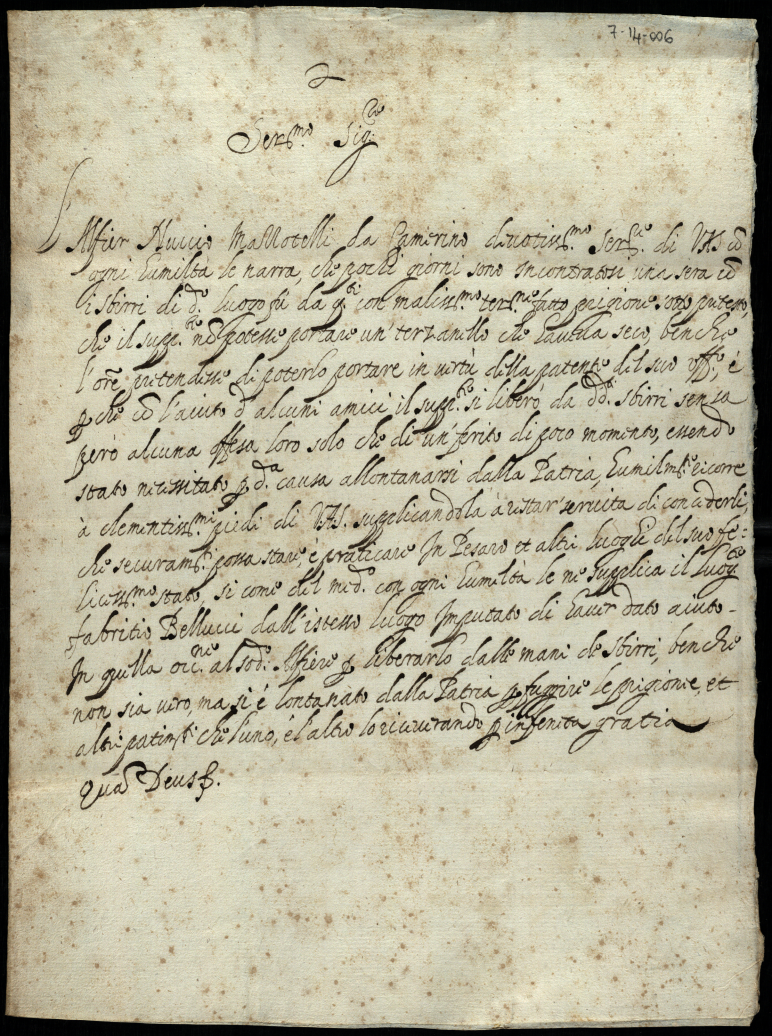 7-14-006
Ser.mo Sig.re
Alfier Nuccio Mattotelli da Camerino divotiss.mo Ser.re di VAS cō
ogni humiltà le narra, che pochi giorni sono incontratosi una sera cō
i sbirri di d.o luogo fù da q.ti con maliss.mo ter.ne fatto prigione sotto pretesto,
che il supp.te nō potesse portare un' terzarollo che haveva seco, ben che
l'ōre pretendesse di poterlo portare in vertù della patente del suo off.o, é
p che cō l'aiuto d alcuni amici il supp.te si liberò da d.d. sbirri senza
però alcuna offesa loro solo che di un' ferito di poco momento, essendo
stato necessitato p d.a causa allontanarsi dalla Patria, humilm.te ricorre
à clementiss.mi piedi di VAS. supplicandola à restar' servita di concederli,
che securam.te possa stare, é praticare In Pesaro et altri luoghi del suo fe=
liciss.mo stato, si come del med.o con ogni humiltà le ne supplica il luog.te
fabritio Bellucci dall'istesso luogo Imputato di haver dato aiuto-
In quella occ.ne al sod.o Alfiere p liberarlo dalle mani de sbirri, ben che
non sia vero, ma si é lontanato dalla Patria p fuggire le prigionie, et
altri patim.ti che l'uno, é l'altro lo riceverando p infenita gratia
Quā Deus &.